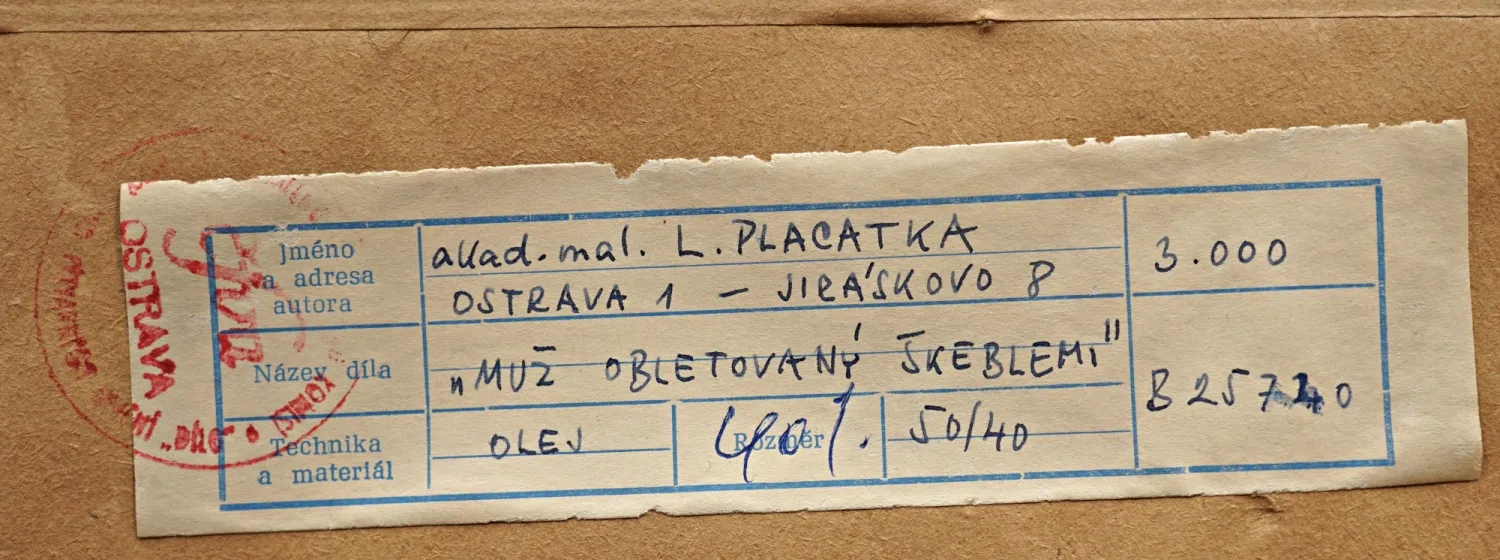 Jméno
a adresa
autora
akad. mal. L. PLACATKA
OSTRAVA 1 – JIRÁSKOVO 8
3.000
Název díla
„MUŽ OBLETOVANÝ ŠKEBLEMI"
B 257
Technika
a materiál
OLEJ
Rozměr
50/40
OSTRAVA
"Dílo"